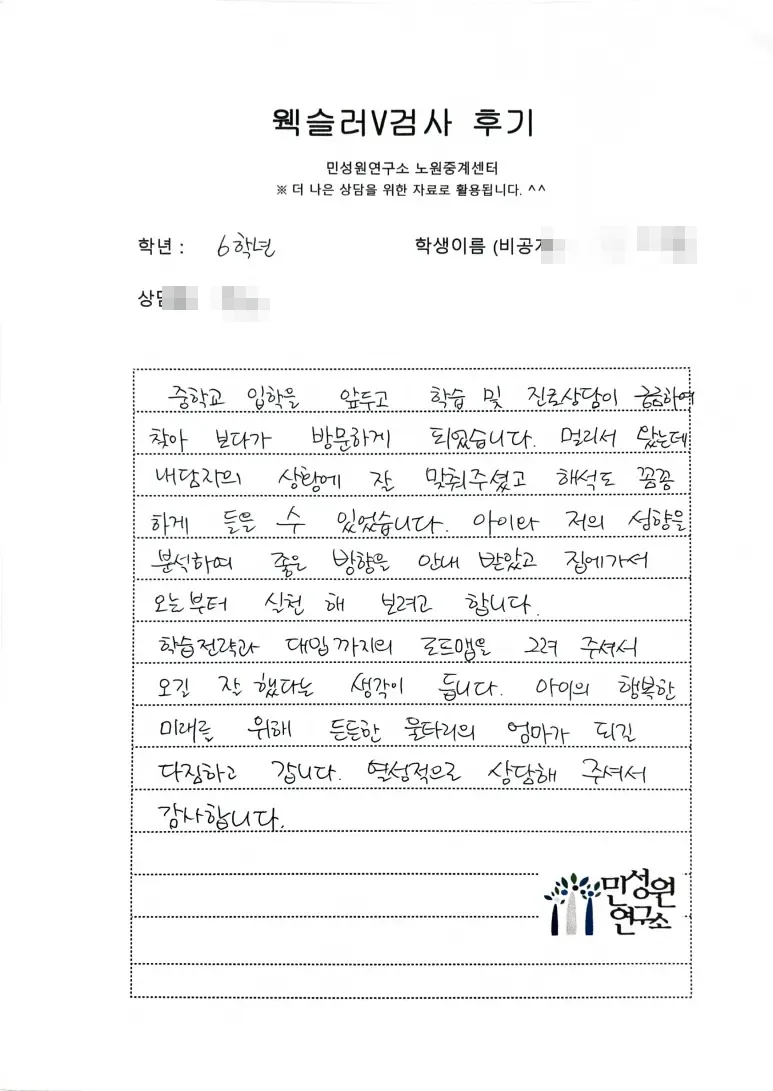 웩슬러V검사 후기
민성원연구소 노원중계센터
※ 더 나은 상담을 위한 자료로 활용됩니다. ^^
학년 : 6학년
학생이름 (비공개
상담
중학교 입학을 앞두고 학습 및 진로상담이 궁금하여
찾아 보다가 방문하게 되었습니다. 멀리서 왔는데
내담자의 상황에 잘 맞춰주셨고 해석도 꼼꼼
하게 들을 수 있었습니다. 아이와 저의 성향을
분석하여 좋은 방향을 안내 받았고 집에가서
오늘부터 실천 해 보려고 합니다.
학습전략과 대입까지의 로드맵을 그려 주셔서
오길 잘 했다는 생각이 듭니다. 아이의 행복한
미래를 위해 든든한 울타리의 엄마가 되길
다짐하고 갑니다. 열성적으로 상담해 주셔서
감사합니다.
민성원
연구소